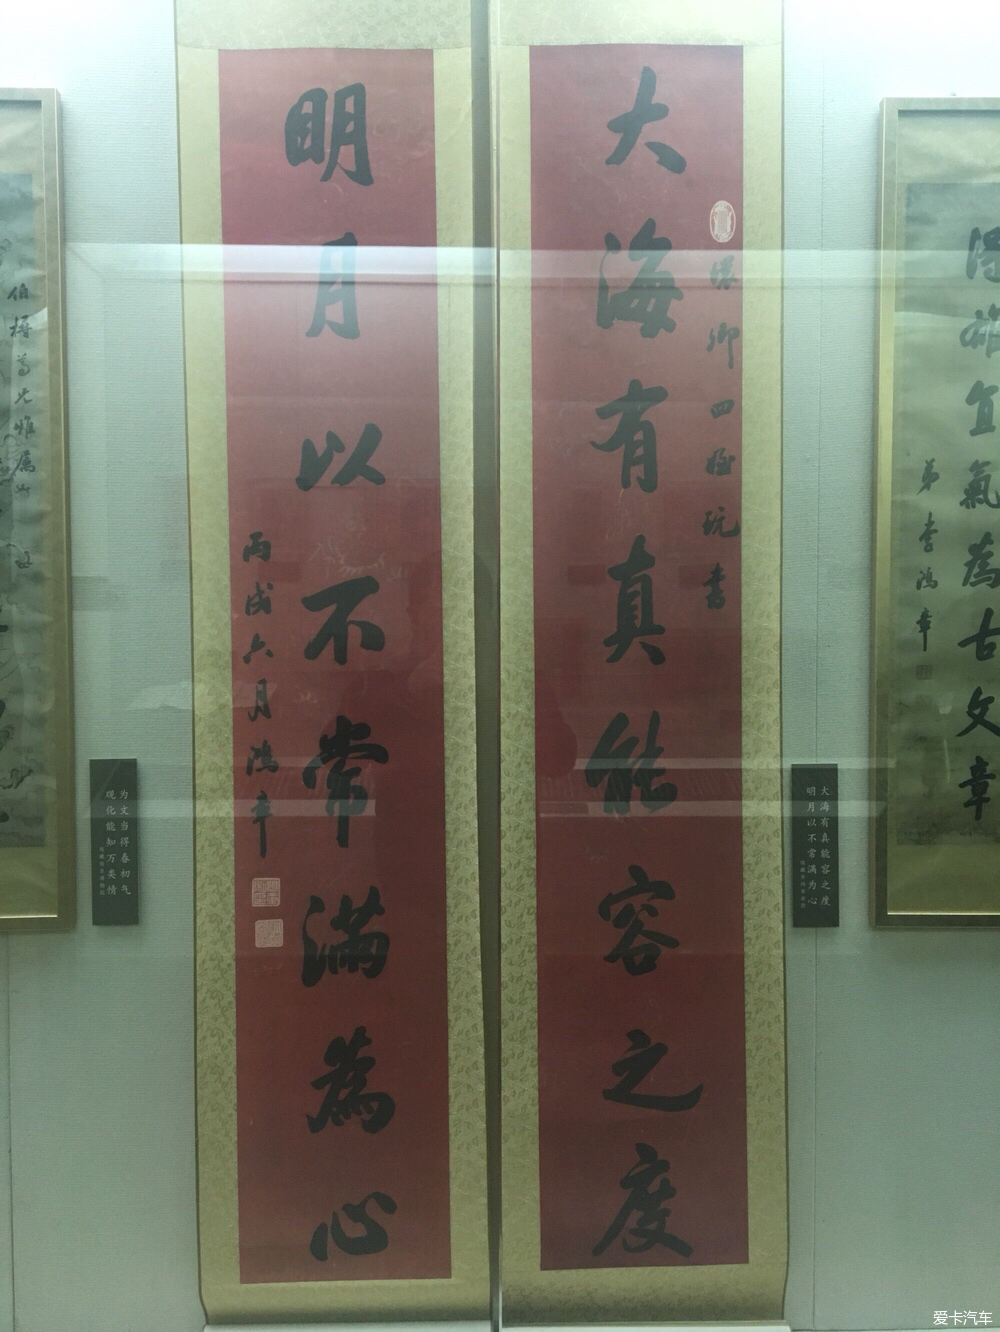 大海有真能容之度
卿四
玩書
明月以不常滿為心
丙戌六月鴻章
大海有真能容之度
明月以不常满为心
为文当得春初气
观化能知万类情
宜氣為古文章
弟李鴻章
伯
尊兄雅屬
爱卡汽车